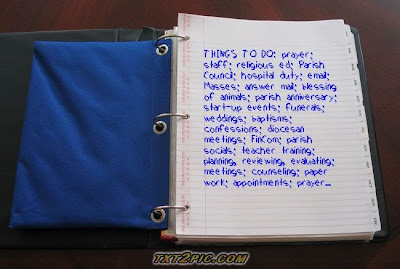 THINGS TO DO: prayer;
staff; religious ed; Parish
Council; hospital duty; email;
Masses; answer mail; blessing
of animals; parish anniversary;
start-up events; funerals;
weddings; baptisms;
confessions; diocesan
meetings; FinCom; parish
socials; teacher training;
planning, reviewing, evaluating;
meetings; counseling; paper
work; appointments; prayer...
TXT2PIC.COM